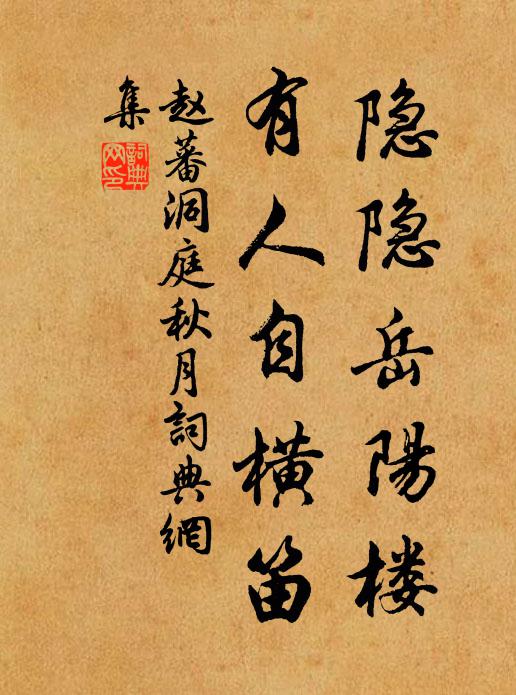 隐隐岳陽楼
有人自横笛
赵蕃洞庭秋月詞典網
集
詞典網印